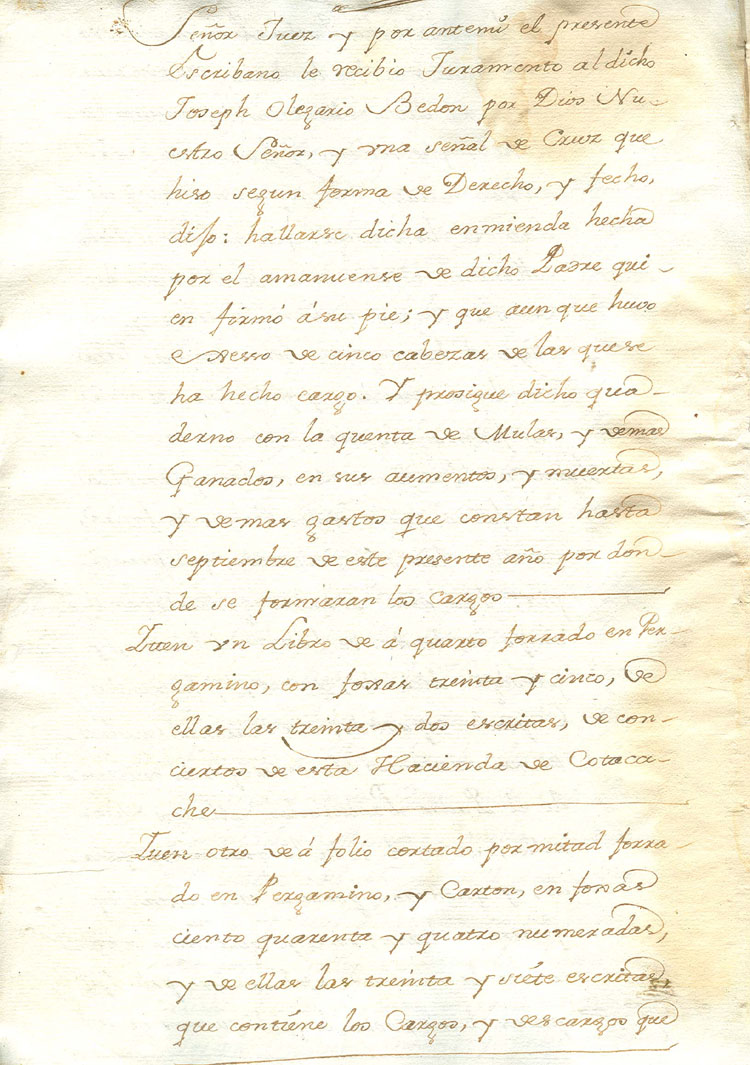 Señor Juez y por antemi el presente
Escribano le recibio Juramento al dicho
Joseph Olegario Bedon por Dios Nu-
estro Señor, y vna señal de Cruz que
hiso segun forma de Derecho, y fecho,
dijo: hallarse dicha enmienda hecha
por el amanuense de dicho Padre qui-
en firmó á su pie; y que aunque huvo
exsesso de cinco cabezas de las que se
ha hecho cargo. Y prosigue dicho qua-
derno con la quenta de Mulas, y demas
Ganados, en sus aumentos, y muertas,
y demas gastos que constan hasta
septiembre de este presente año por don-
de se formaran los cargos
Ytten vn Libro de á quarto forrado en Per-
gamino, con foxas treinta y cinco, de
ellas las treinta y dos escritas, de con-
ciertos de esta Hacienda de Cotaca-
che
Ytten otro de á folio cortado por mitad forra-
do en Pergamino, y Carton, en foxas
ciento quarenta y quatro numeradas,
y de ellas las treinta y siete escritas,
que contiene los Cargos, y descargos que